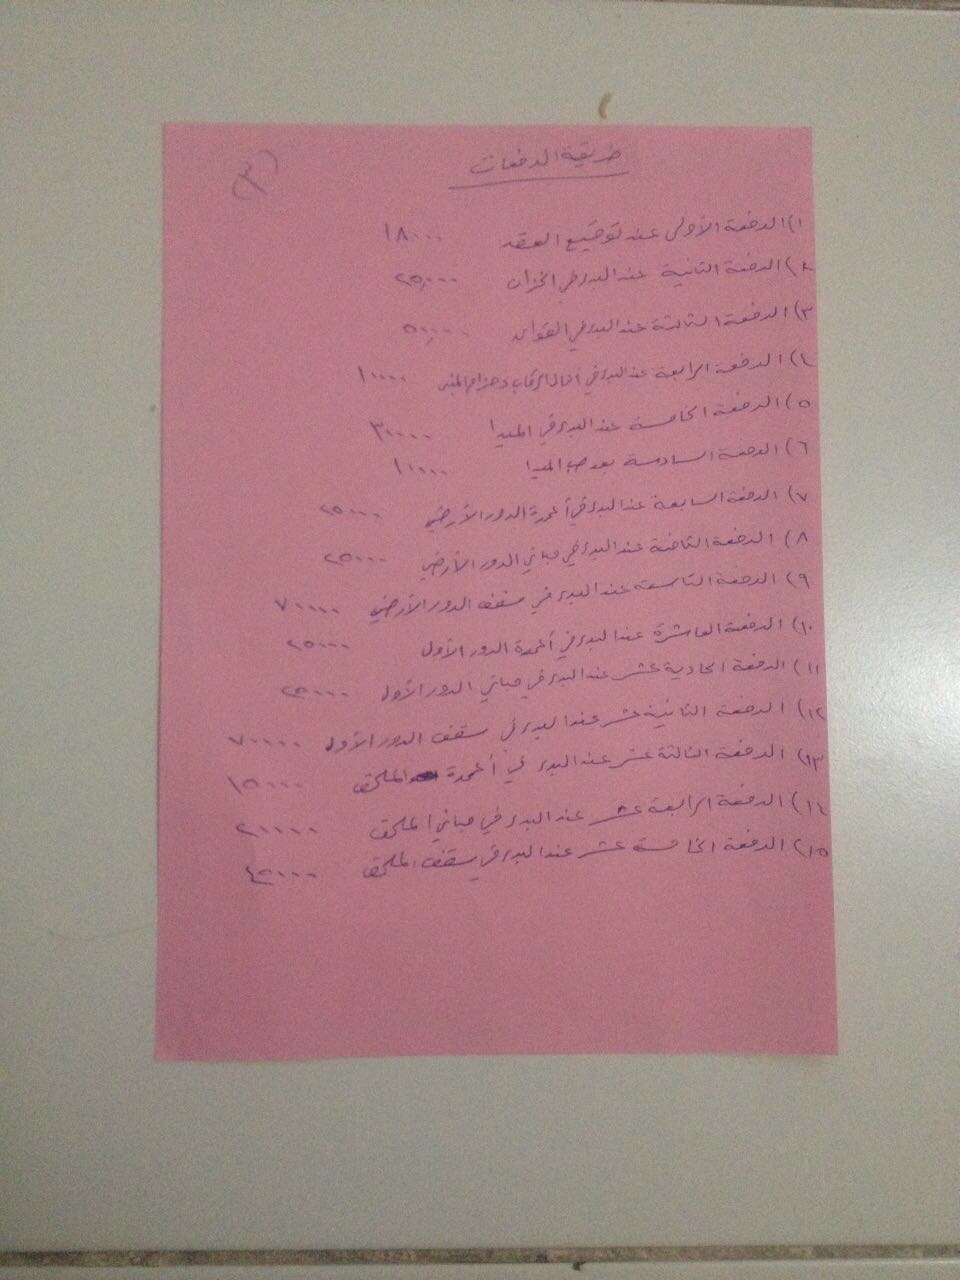 طريقة الدفعات
(٣)
١) الدفعة الأولى عند توقيع العقد ١٨٠٠٠
٢) الدفعة الثانية عند البدء في الخزان ٢٥٠٠٠
٣) الدفعة الثالثة عند البدء في القواعد ٥٠٠٠٠
٤) الدفعة الرابعة عند البدء في الرقاب وحزام المبنى ١٠٠٠٠
٥) الدفعة الخامسة عند البدء في الميدا ٣٠٠٠٠
٦) الدفعة السادسة بعد صب الميدا ١٠٠٠٠
٧) الدفعة السابعة عند البدء في أعمدة الدور الأرضي ٢٥٠٠٠
٨) الدفعة الثامنة عند البدء في مباني الدور الأرضي ٢٥٠٠٠
٩) الدفعة التاسعة عند البدء في سقف الدور الأرضي ٧٠٠٠٠
١٠) الدفعة العاشرة عند البدء في أعمدة الدور الأول ٢٥٠٠٠
١١) الدفعة الحادية عشر عند البدء في مباني الدور الأول ٢٥٠٠٠
١٢) الدفعة الثانية عشر عند البدء في سقف الدور الأول ٧٠٠٠٠
١٣) الدفعة الثالثة عشر عند البدء في أعمدة الملحق ١٥٠٠٠
١٤) الدفعة الرابعة عشر عند البدء في مباني الملحق ٢٠٠٠٠
١٥) الدفعة الخامسة عشر عند البدء في سقف الملحق ٤٥٠٠٠